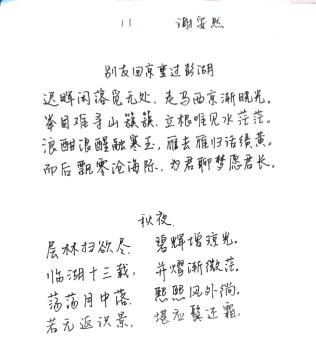 11 谢安然
别友回京重过彭湖
迟晖闲落觅无处，走马西京渐晓光。
举目难寻山簇簇，立根唯见水茫茫。
浪酣浪醒融寒玉，雁去雁归话绩黄。
而后飘零沧海际，为君聊梦愿君长。
秋夜
层林扫欲尽，碧辉增琼光。
临湖十三载，并熠渐微茫。
荡荡月中落，熙熙风外徜。
若无返识景，堪应鬓还霜。